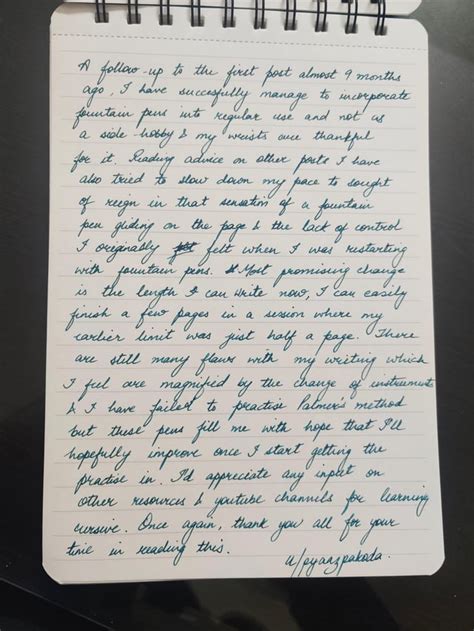 A follow-up to the first post almost 9 months
ago, I have succesfully manage to incorporate
fountain pens into regular use and not us
a side-hobby & my wrists are thankful
for it. Reading advice on other posts I have
also tried to slow down my pace to sought
of reign in that sensation of a fountain
pen gliding on the page & the lack of control
I originally felt when I was restarting
with fountain pens. Most promising change
is the length I can write now, I can easily
finish a few pages in a session where my
earlier limit was just half a page. There
are still many flaws with my writing which
I feel are magnified by the change of instruments
& I have failed to practise Palmer's method
but these pens fill me with hope that I'll
hopefully improve once I start getting the
practise in. I'd appreciate any input on
other resources & youtube channels for learning
cursive. Once again, thank you all for your
time in reading this.
u/pyanzpakoda.